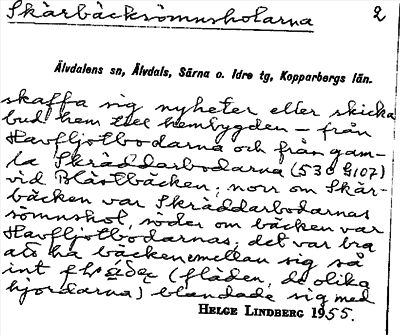 Skärbäcksömnsholarna 2
Älvdalens sn, Älvdals, Särna o. Idre tg, Kopparbergs län.
skaffa sig nyheter eller skicka
bud hem till hembygden — från
Havfljotbodarna och från gam-
la Skräddarbodarna (53C G107)
vid Blåstbäcken; norr om Skär-
bäcken var Skräddarbodarnas
sömnshol, söder om bäcken var
Havfljotbodarnas; det var bra
att ha bäcken emellan sig så
int (flåden, de olika
hjordarna) blandade sig med
HELGE LINDBERG 1955.